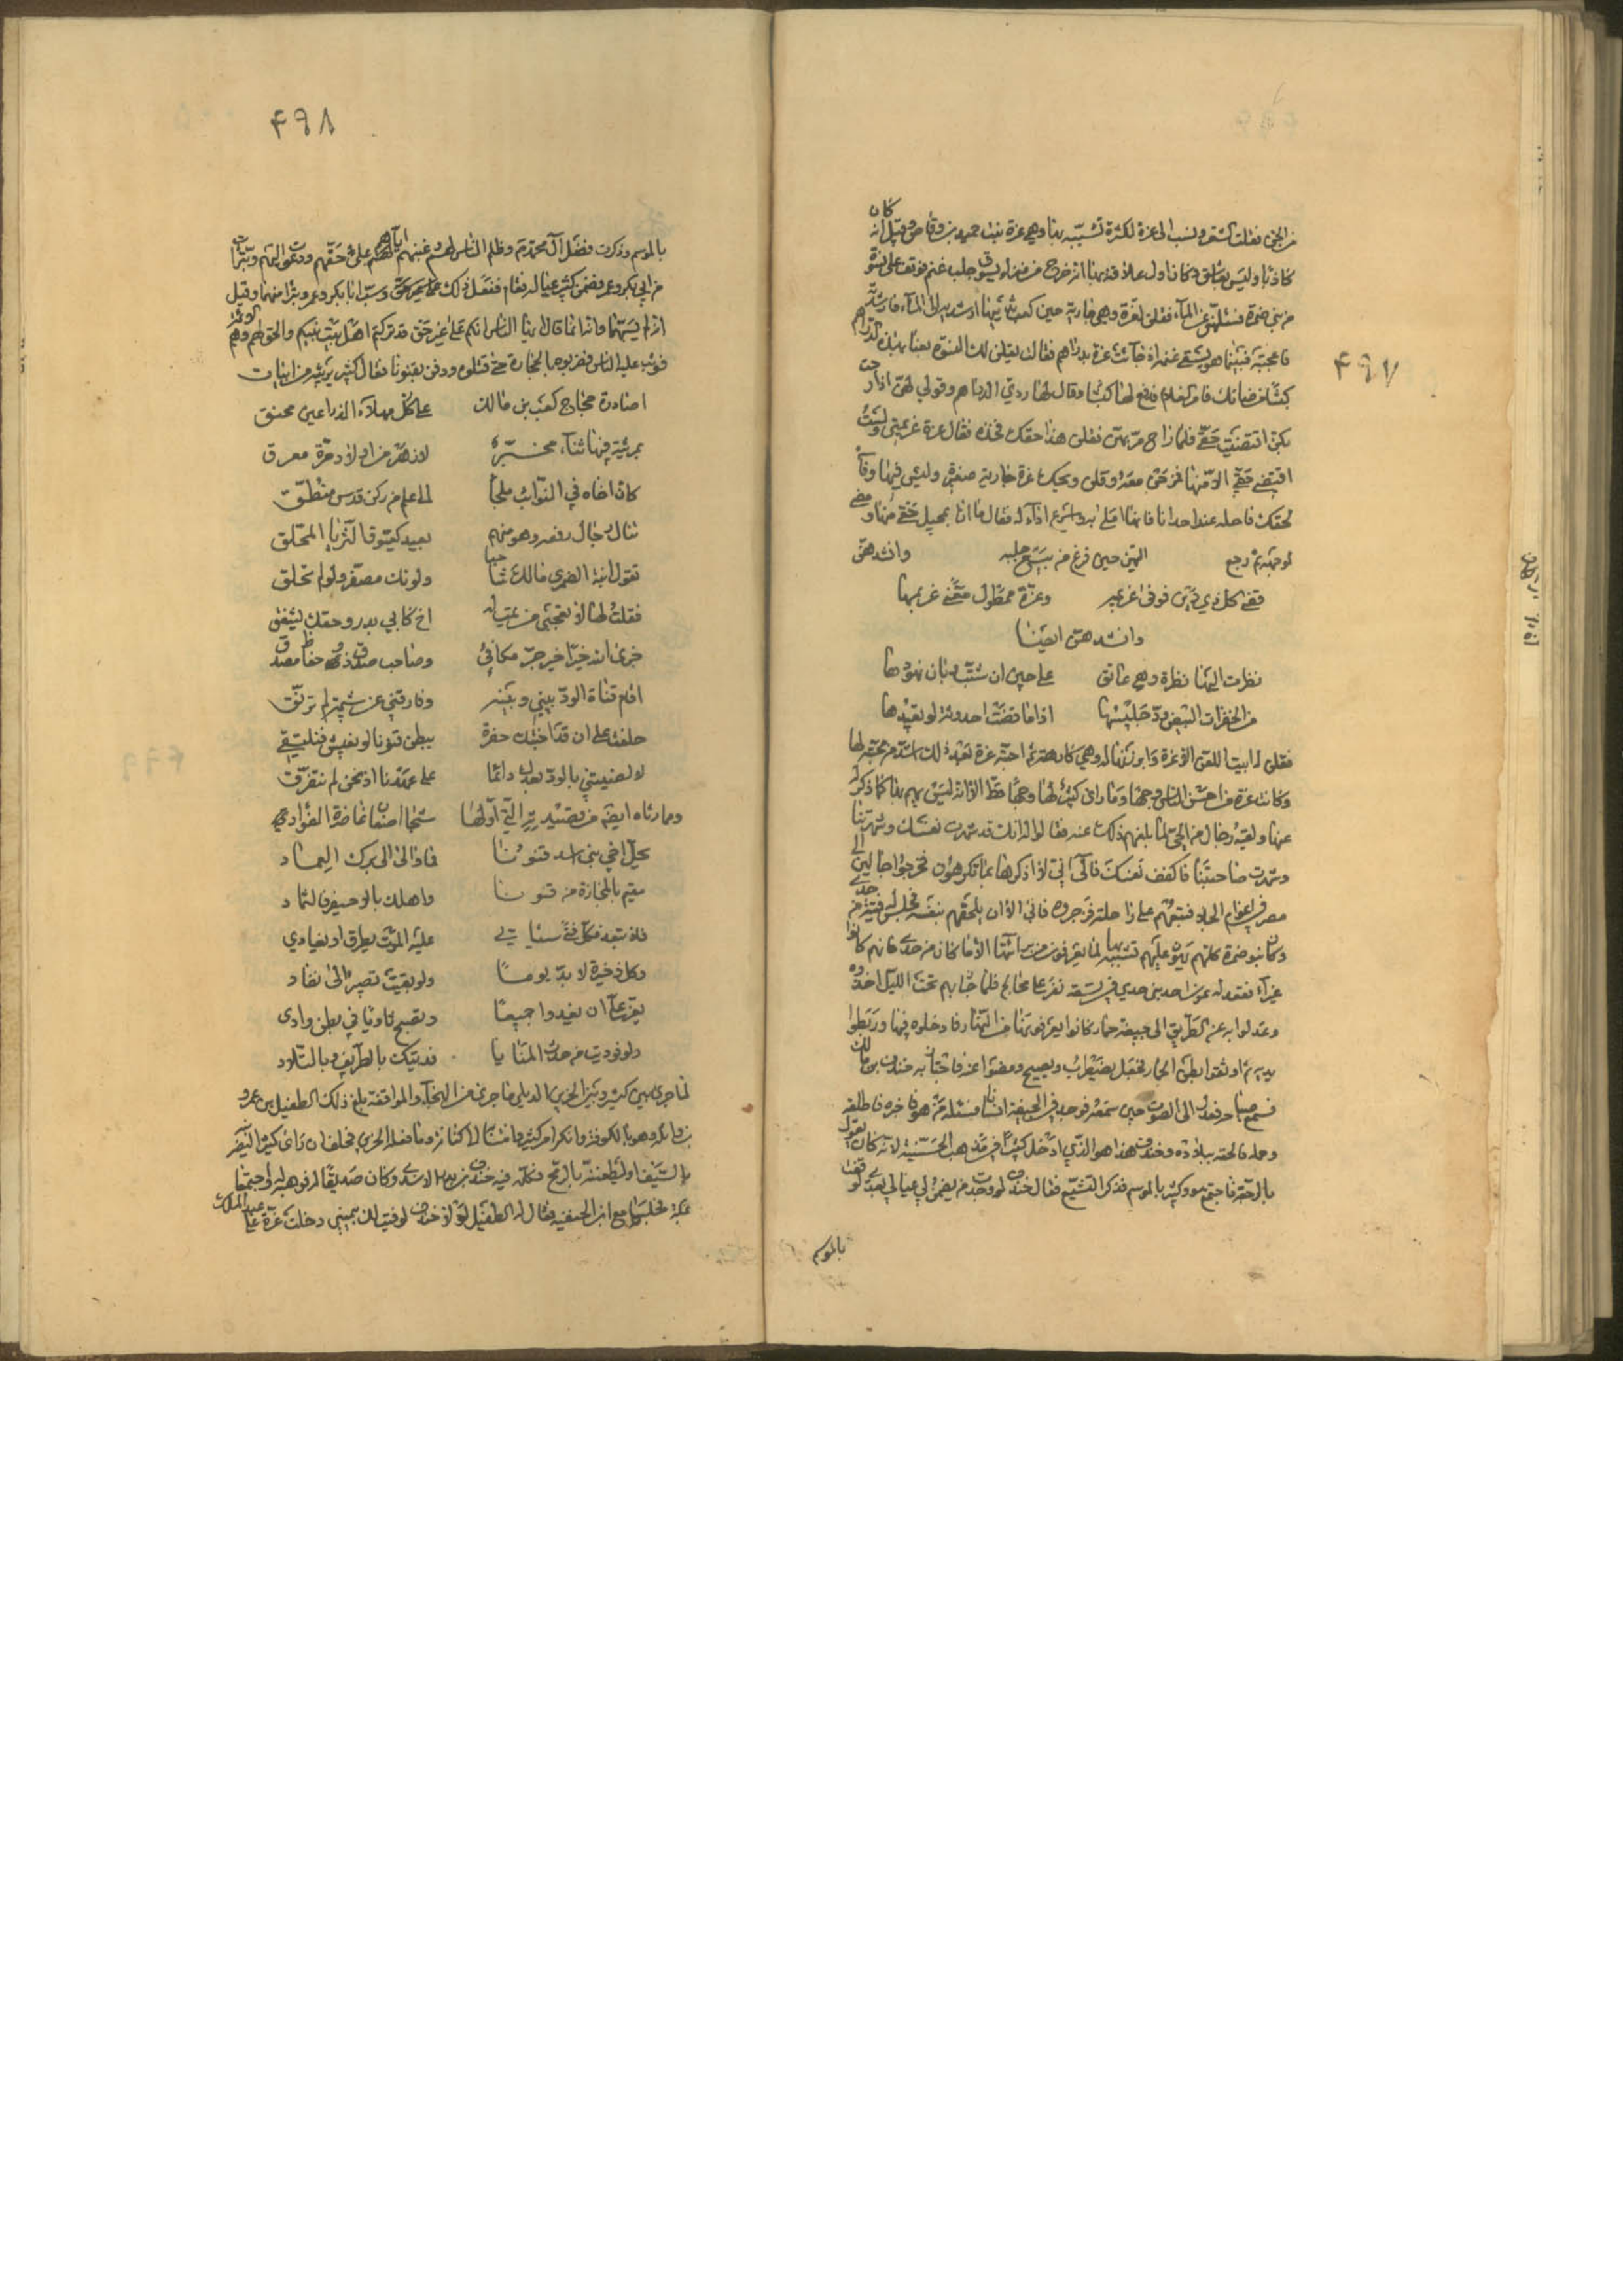 كان
من الجن فقلت الشعر ونسب الى عزة لكثرة تشبيبه بها وهي عزة بنت حميد بن وقاص وقيل انه
كاذبا وليس بعاشق وكان اول علاقته بها انه خرج من منزله يسوق جلب غنم فوقف على نسوة
من بني ضمرة فسئلهن عن الماء فقلن لعزة وهي جارية حين كعب ثدياها ارشديه الى الماء فارشدته
فاعجبته فبينما هو يسقي غنمه اذ جاءت عزة بدراهم فقالت يقلن لك النسوة بعنا بهذه الدراهم
كبشا من ضانك فامر الغلام فدفع لها كبشا وقال لها ردي الدراهم وقولي لهن اذا رحت
بكن اقتضيت حقي فلما راح مر بهن فقلن هذا حقك فخذه فقال عزة غريمتي ولست
اقتضي حقي الا منها فمزحن معه وقلن ويحك عزة جارية صغيرة وليس فيها وفاء
لحقك فاحله عند احدانا فانها املى به واسرع اداء له فقال ما انا بمحيل حقي منها ومضى
لوجهته ثم رجع اليهن حين فرغ من بيع جلبه وانشدهن
قضى كل ذي دين فوفى غريمه وعزة ممطول معنى غريمها
وانشدهن ايضا
نظرت اليها نظرة وهي عاتق على حين ان شبت وبان نهودها
من الخفرات البيض ود جليسها اذا ما قضت احدوثة لو تعيدها
فقلن له ابيت الا عزة وابرزنها له وهي كارهة ثم احبته عزة بعد ذلك اشد من محبته لها
وكانت عزة من احسن الناس وجها وما راى كثير لها وجها قط الا انه ليس يهيم بها كما ذكر له
عنها ولقيه رجال من الحي لما بلغهم ذلك عنه فقالوا له انك قد شهرت نفسك وشهرتنا
وشهرت صاحبتنا فاكفف نفسك قال اني لا اذكرها بما تكرهون فخرجوا جالين الى
مصر في اعوام الجلاء فتبعهم على راحلته فزجروه فابى الا ان يلحقهم بنفسه فجلس له فتية من جدي
وكان بنو ضمرة كلهم يهون عليهم تشبيبه بها لما يعرفون من براءتها الا ما كان من جدي فانهم كانوا
غيراء فقعد له عون احد بني جدي في تسعة نفر على محالج فلما جاز بهم تحت الليل اخذوه
وعدلوا به عن الطريق الى جيفة حمار كانوا يعرفونها من النهار فادخلوه فيها وربطوا
يديه ثم اوثقوا بطن الحمار فجعل يضطرب ويصيح ومضوا عنه فاجتاز به خندف بن مالك
فسمع صياحه فعدل الى الصوت حين سمعه فوجد في الجيفة انسانا فسئله من هو فاخبره فاطلقه
وحمله فالحقه ببلاده وخندف هذا هو الذي ادخل كثيرا في مذهب الخشبية لانه كان يقول
بالرجعة فاجتمع هو وكثير بالموسم فذكر التشيع فقال خندف لو وجدت من يضمن لي عيالي بعدي لوقفت
بالموسم
٤٩٧
٤٩٨
بالموسم وذكرت فضل آل محمد وظلم الناس لهم وغصبهم اياهم على حقهم ودعوت اليهم وتبرات
من ابي بكر وعمر فضمن كثير عياله فقام ففعل ذلك وسب ابا بكر وعمر وتبرا منهما وقيل
انه لم يسبهما وانه انما قال ايها الناس انكم على غير حق قد تركتم اهل بيت نبيكم والحق لهم وهم الائمة
فوثب عليه الناس فضربوه بالحجارة حتى قتلوه ودفن بقنونا فقال كثير يرثيه من ابيات
اصادرة حجاج كعب بن مالك على كل مهلاء الذراعين محنق
بمرثية فيها ثناء محبر لازهر من اولاد مرة معرق
كان اخاه في النوائب ملجأ الى علم من ركن قدس منطق
ينال رجال رفعه وهو منهم بعيد كعيوق الثريا المحلق
تقول ابنة الضمري مالك شاحبا ولونك مصفر ولو لم تخلق
فقلت لها لا تعجبي من يمت له اخ كابي بدر وحقك يشفق
جزى الله خيرا خير جز مكافئ وصاحب صدق ذو حفاظ ومصدق
اقام قناة الود بيني وبينه وفارقني عن شيمة لم ترنق
حلفت على ان قد اجنتك حفرة ببطن قنونا لو نعيش فنلتقي
لالفيتني بالود بعدك دائما على عهدنا اذ نحن لم نتفرق
ومما رثاه ايضا من قصيدته التي اولها شجا اضعان غاضرة الفؤادي
محل اخي بني اسد قنونا فاوالى الى برك اليماد
مقيم بالمجازة من قنونا واهلك بالاجيفر والثماد
فلا تبعد فكل فتى سياتي عليه الموت يطرق او يغادي
وكل ذخيرة لا بد يوما ولو بقيت تصير الى نفاد
يعز علي ان نغدوا جميعا وتصبح ثاويا في بطن وادي
ولو فوديت من حدث المنايا فديتك بالطريف وبالتلاد
لما جرى بين كثير وبين الحزين الديلي ما جرى من الهجاء والمواقفة بلغ ذلك الطفيل بن عمرو
بن واثلة وهو بالكوفة وانكر امر كثير وما فعله الحزين فحلف ان راى كثير اليضربنه
بالسيف او ليطعننه بالرمح فكلمه فيه خندف الاسدي وكان صديقا له فوهبه له واجتمعا
بمكة فجلسا مع ابن الحنفية فقال له الطفيل لولا خندف لوفيت لك بيميني دخلت عزة على عبد الملك